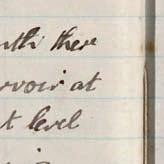 with ther
rvoir at
t level